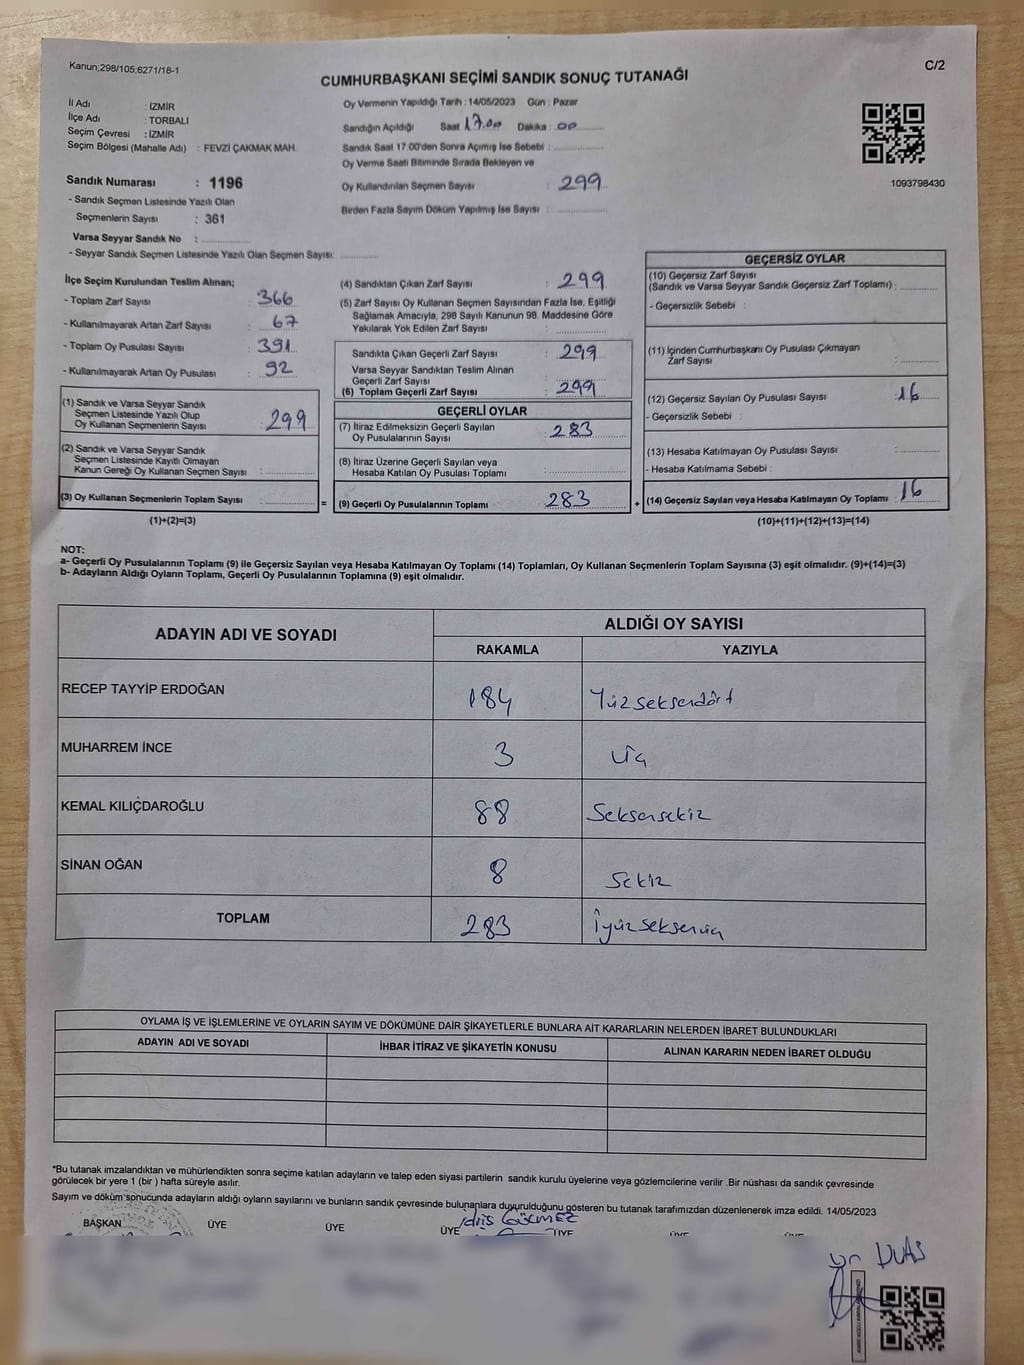 Kanun;298/105;6271/18-1
C/2
CUMHURBAŞKANI SEÇİMİ SANDIK SONUÇ TUTANAĞI
İl Adı : İZMİR
İlçe Adı : TORBALI
Seçim Çevresi : İZMİR
Seçim Bölgesi (Mahalle Adı) : FEVZİ ÇAKMAK MAH.
Oy Vermenin Yapıldığı Tarih : 14/05/2023 Gün : Pazar
Sandığın Açıldığı Saat 17.00 Dakika : 00
Sandık Saat 17.00'den Sonra Açımış İse Sebebi :
Oy Verme Saati Bitiminde Sırada Bekleyen ve
Oy Kullandırılan Seçmen Sayısı : 299
Birden Fazla Sayım Döküm Yapılmış İse Sayısı :
1093798430
Sandık Numarası : 1196
- Sandık Seçmen Listesinde Yazılı Olan
Seçmenlerin Sayısı : 361
Varsa Seyyar Sandık No :
- Seyyar Sandık Seçmen Listesinde Yazılı Olan Seçmen Sayısı:
İlçe Seçim Kurulundan Teslim Alınan;
- Toplam Zarf Sayısı : 366
- Kullanılmayarak Artan Zarf Sayısı : 67
- Toplam Oy Pusulası Sayısı : 391
- Kullanılmayarak Artan Oy Pusulası : 92
(1) Sandık ve Varsa Seyyar Sandık
Seçmen Listesinde Yazılı Olup
Oy Kullanan Seçmenlerin Sayısı : 299
(2) Sandık ve Varsa Seyyar Sandık
Seçmen Listesinde Kayıtlı Olmayan
Kanun Gereği Oy Kullanan Seçmen Sayısı :
(3) Oy Kullanan Seçmenlerin Toplam Sayısı :
(1)+(2)=(3)
(4) Sandıktan Çıkan Zarf Sayısı : 299
(5) Zarf Sayısı Oy Kullanan Seçmen Sayısından Fazla İse, Eşitliği
Sağlamak Amacıyla, 298 Sayılı Kanunun 98. Maddesine Göre
Yakılarak Yok Edilen Zarf Sayısı :
Sandıkta Çıkan Geçerli Zarf Sayısı : 299
Varsa Seyyar Sandıktan Teslim Alınan
Geçerli Zarf Sayısı :
(6) Toplam Geçerli Zarf Sayısı : 299
GEÇERLİ OYLAR
(7) İtiraz Edilmeksizin Geçerli Sayılan
Oy Pusulalarının Sayısı : 283
(8) İtiraz Üzerine Geçerli Sayılan veya
Hesaba Katılan Oy Pusulası Toplamı :
= (9) Geçerli Oy Pusulalarının Toplamı : 283
GEÇERSİZ OYLAR
(10) Geçersiz Zarf Sayısı
(Sandık ve Varsa Seyyar Sandık Geçersiz Zarf Toplamı) :
- Geçersizlik Sebebi :
(11) İçinden Cumhurbaşkanı Oy Pusulası Çıkmayan
Zarf Sayısı :
(12) Geçersiz Sayılan Oy Pusulası Sayısı : 16
- Geçersizlik Sebebi :
(13) Hesaba Katılmayan Oy Pusulası Sayısı :
- Hesaba Katılmama Sebebi :
+ (14) Geçersiz Sayılan veya Hesaba Katılmayan Oy Toplamı : 16
(10)+(11)+(12)+(13)=(14)
NOT:
a- Geçerli Oy Pusulalarının Toplamı (9) ile Geçersiz Sayılan veya Hesaba Katılmayan Oy Toplamı (14) Toplamları, Oy Kullanan Seçmenlerin Toplam Sayısına (3) eşit olmalıdır. (9)+(14)=(3)
b- Adayların Aldığı Oyların Toplamı, Geçerli Oy Pusulalarının Toplamına (9) eşit olmalıdır.
ADAYIN ADI VE SOYADI
ALDIĞI OY SAYISI
RAKAMLA YAZIYLA
RECEP TAYYİP ERDOĞAN 184 Yüzseksendört
MUHARREM İNCE 3 Üç
KEMAL KILIÇDAROĞLU 88 Seksensekiz
SİNAN OĞAN 8 Sekiz
TOPLAM 283 İyüzseksenüç
OYLAMA İŞ VE İŞLEMLERİNE VE OYLARIN SAYIM VE DÖKÜMÜNE DAİR ŞİKAYETLERLE BUNLARA AİT KARARLARIN NELERDEN İBARET BULUNDUKLARI
ADAYIN ADI VE SOYADI İHBAR İTİRAZ VE ŞİKAYETİN KONUSU ALINAN KARARIN NEDEN İBARET OLDUĞU
*Bu tutanak imzalandıktan ve mühürlendikten sonra seçime katılan adayların ve talep eden siyasi partilerin sandık kurulu üyelerine veya gözlemcilerine verilir .Bir nüshası da sandık çevresinde
görülecek bir yere 1 (bir ) hafta süreyle asılır.
Sayım ve döküm sonucunda adayların aldığı oyların sayılarını ve bunların sandık çevresinde bulunanlara duyurulduğunu gösteren bu tutanak tarafımızdan düzenlenerek imza edildi. 14/05/2023
idris GÖÇMEZ
BAŞKAN ÜYE ÜYE ÜYE ÜYE ÜYE ÜYE